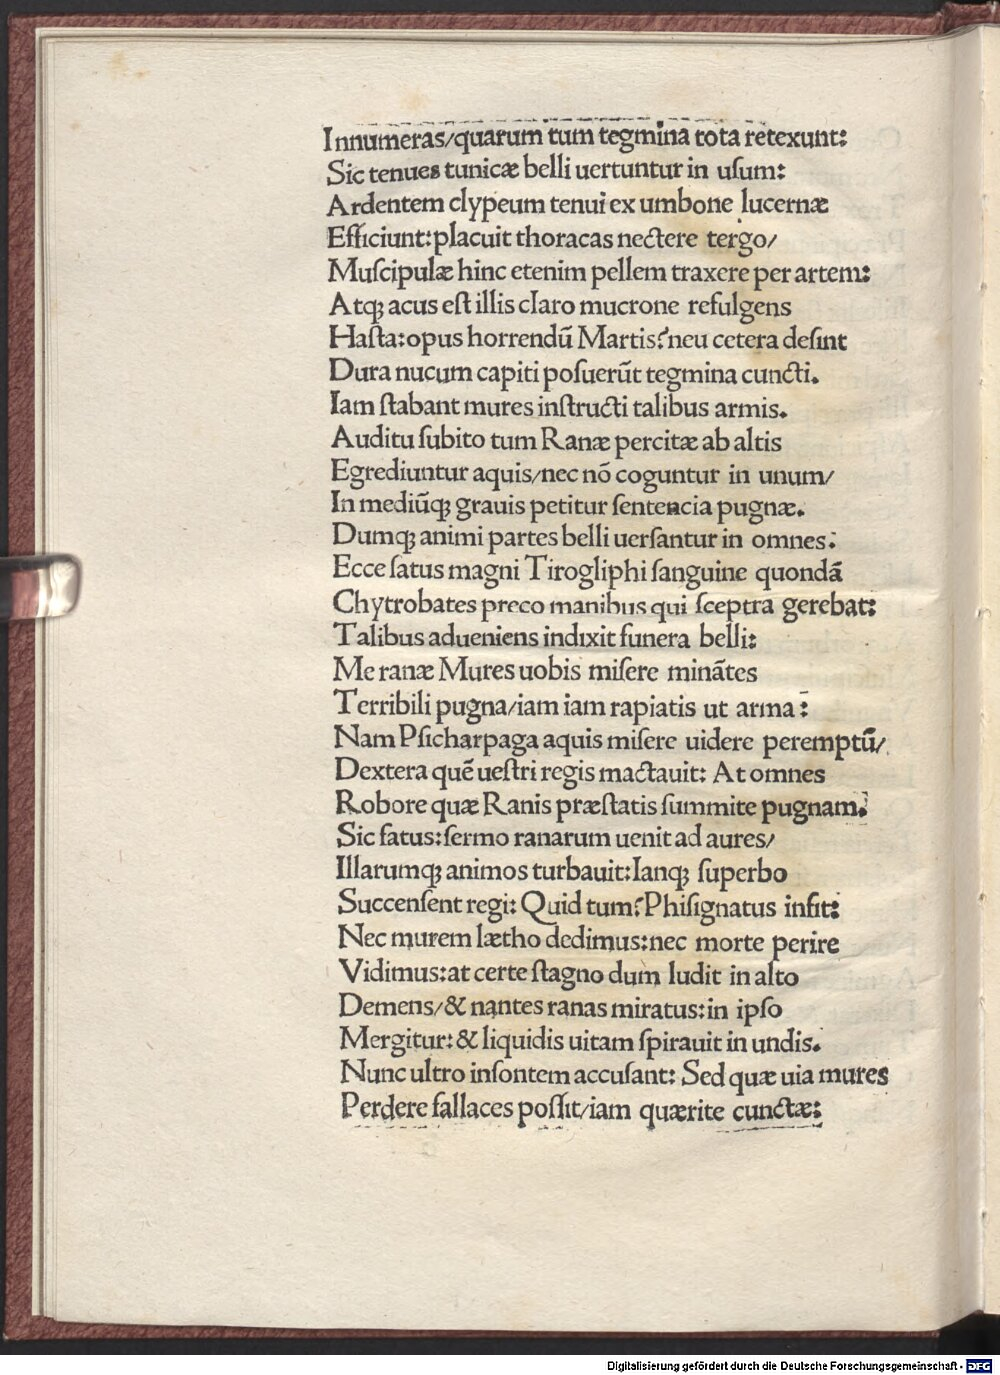 Innumeras/quarum tum tegmina tota retexunt:
Sic tenues tunicæ belli uertuntur in uſum:
Ardentem clypeum tenui ex umbone lucernæ
Efficiunt:placuit thoracas nectere tergo/
Muſcipulæ hinc etenim pellem traxere per artem:
Atqꝫ acus eſt illis claro mucrone refulgens
Haſta:opus horrendū Martis?neu cetera deſint
Dura nucum capiti poſuerūt tegmina cuncti.
Iam ſtabant mures inſtructi talibus armis.
Auditu ſubito tum Ranæ percitæ ab altis
Egrediuntur aquis/nec nō coguntur in unum/
In mediūqꝫ grauis petitur ſentencia pugnæ.
Dumqꝫ animi partes belli uerſantur in omnes:
Ecce ſatus magni Tirogliphi ſanguine quondā
Chytrobates preco manibus qui ſceptra gerebat:
Talibus adueniens indixit funera belli:
Me ranæ Mures uobis miſere minātes
Terribili pugna/iam iam rapiatis ut arma:
Nam Pſicharpaga aquis miſere uidere peremptū/
Dextera quē ueſtri regis mactauit: At omnes
Robore quæ Ranis præſtatis ſummite pugnam.
Sic fatus:ſermo ranarum uenit ad aures/
Illarumqꝫ animos turbauit:Ianqꝫ ſuperbo
Succenſent regi: Quid tum?Phiſignatus infit:
Nec murem lætho dedimus:nec morte perire
Vidimus:at certe ſtagno dum ludit in alto
Demens/& nantes ranas miratus:in ipſo
Mergitur:& liquidis uitam ſpirauit in undis.
Nunc ultro inſontem accuſant: Sed quæ uia mures
Perdere fallaces poſſit/iam quærite cunctæ:
Digitalisierung gefördert durch die Deutsche Forschungsgemeinschaft - DFG